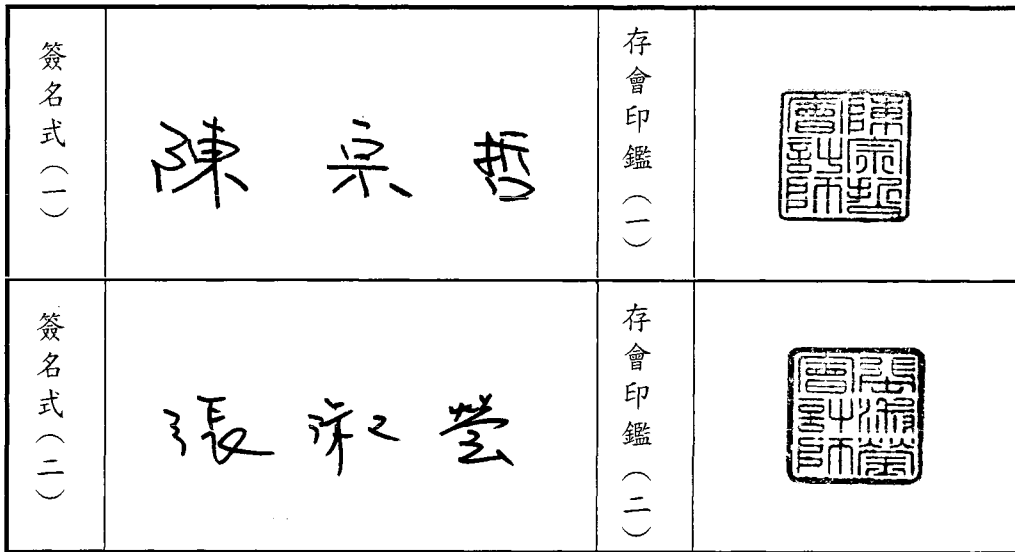 簽名式（一）
陳宗哲
存會印鑑（一）
陳宗哲會計師
簽名式（二）
張淑瑩
存會印鑑（二）
張淑瑩會計師